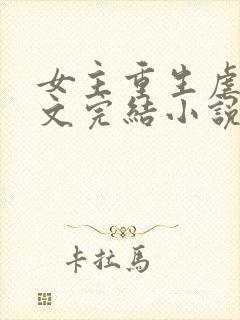 女主重生虐
文完結小說
卡拉馬